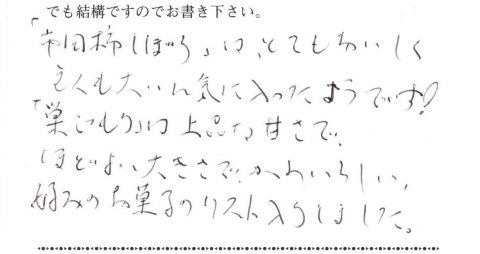 でも結構ですのでお書き下さい。
「市田柿しぼり」は、とてもおいしく
主人も大いに気に入ったようです!
「巣ごもり」は上品な甘さで、
ほどよい大きさで、かわいらしい、
好みのお菓子のリスト入りしました。